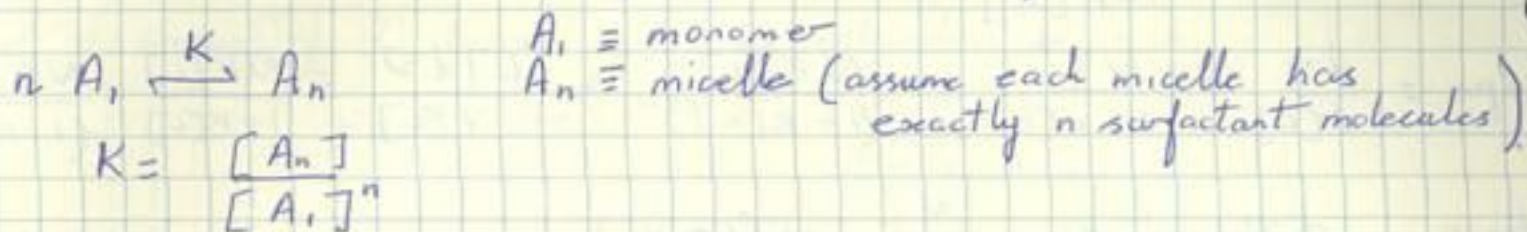 n A₁ ⇌ An K
A₁ ≡ monomer
An ≡ micelle (assume each micelle has
exactly n surfactant molecules)
K = [An] / [A₁]ⁿ